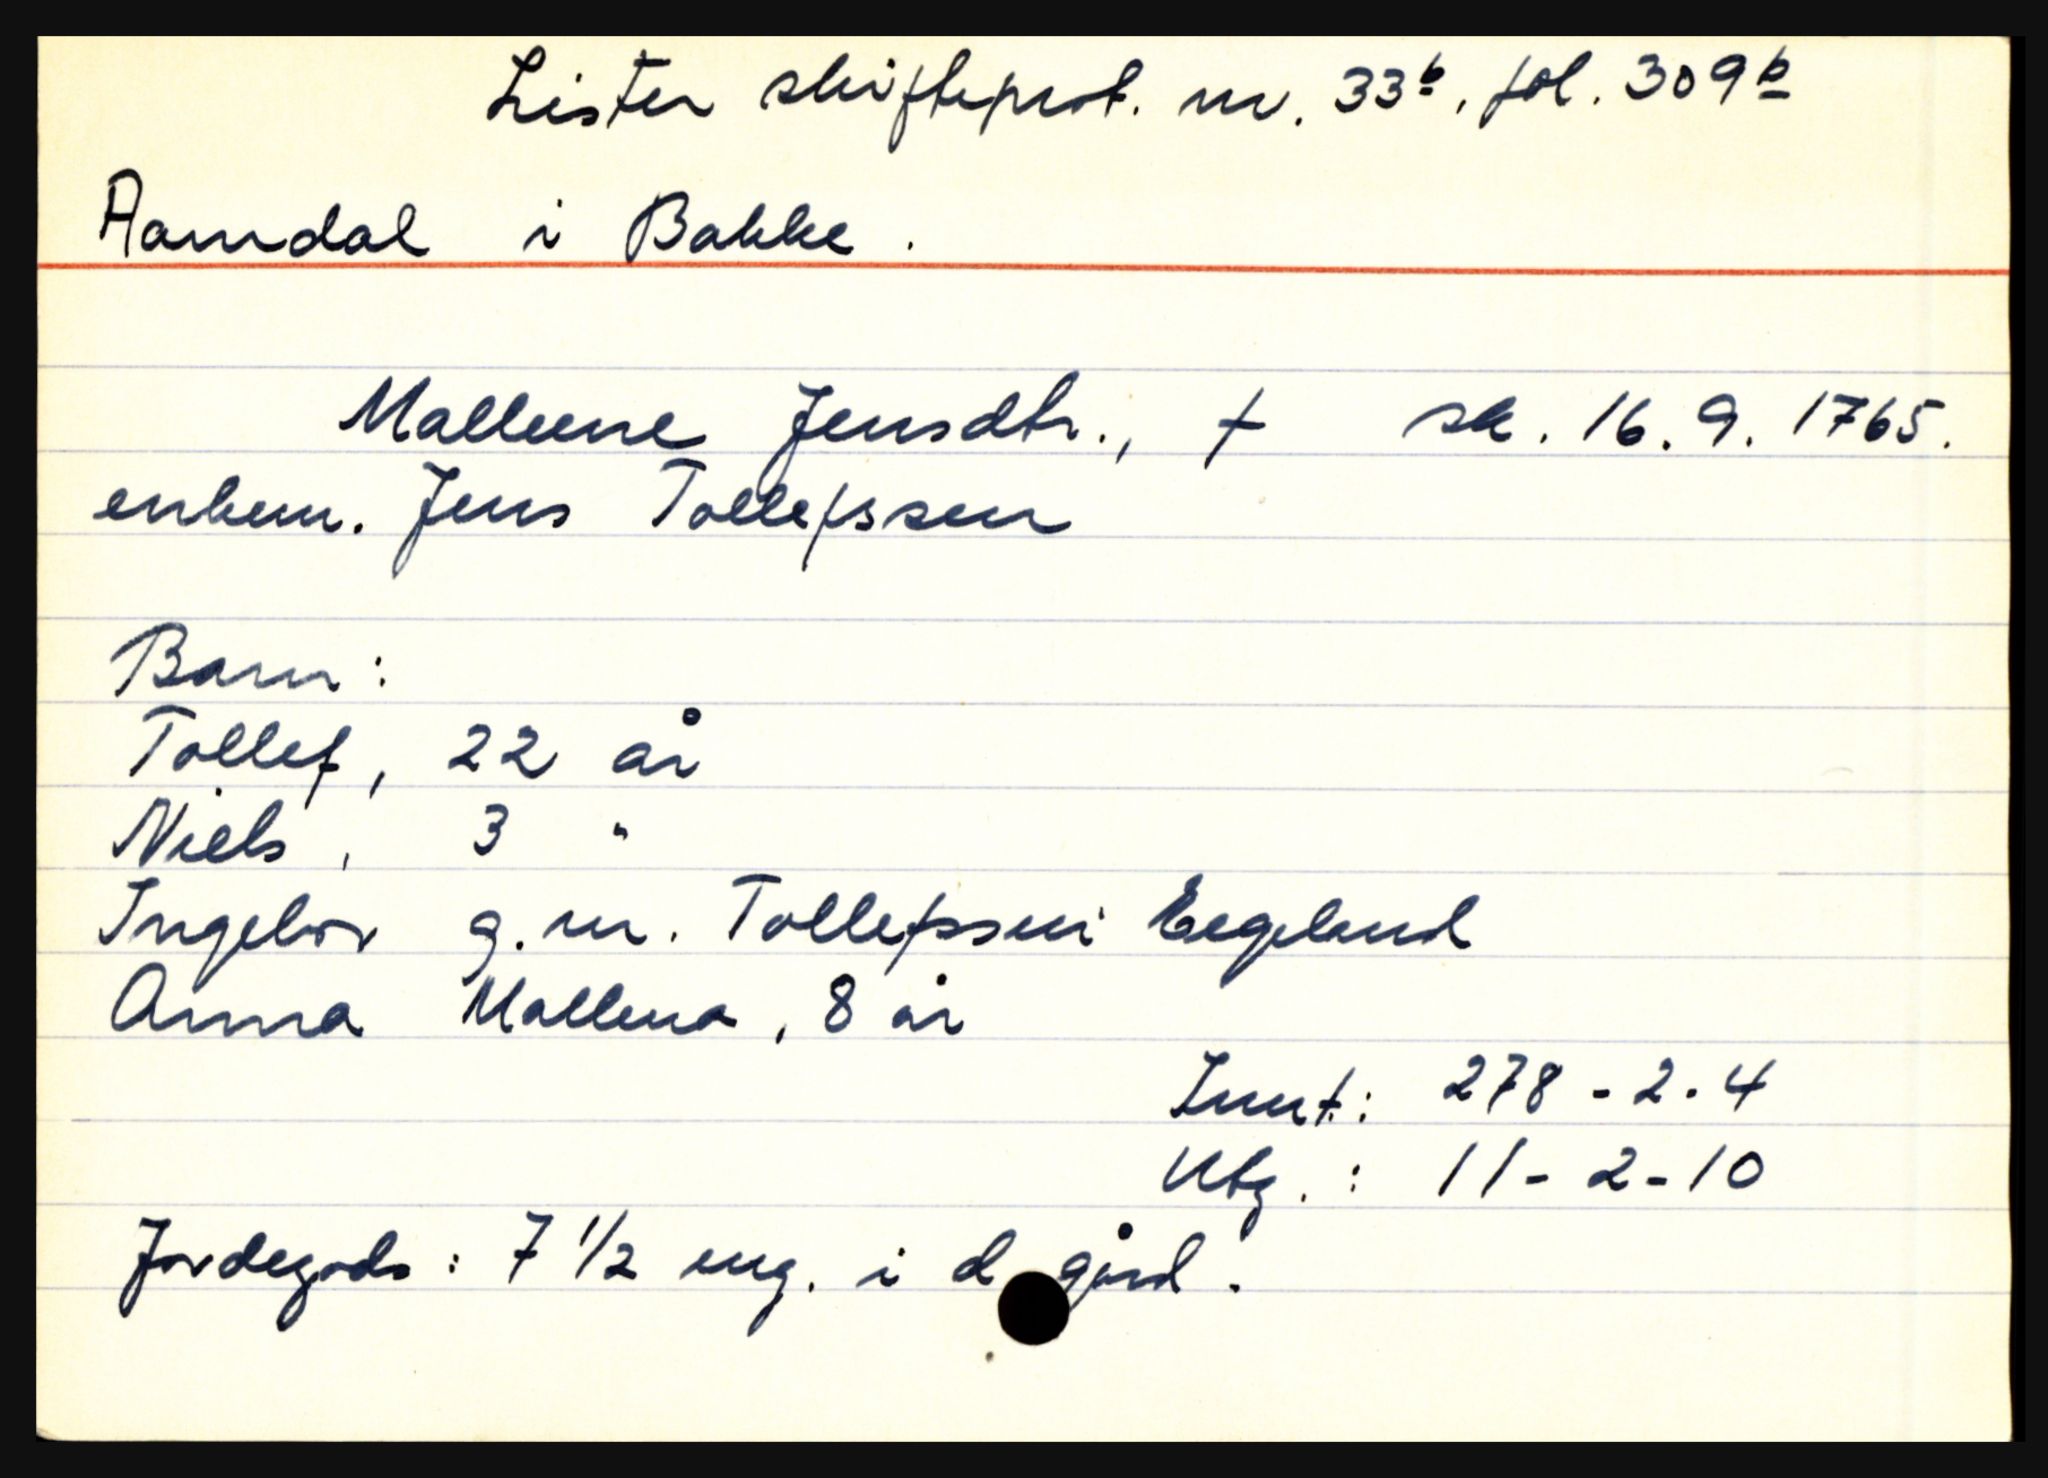 Lister skifteprot. nr. 33b, fol. 309b
Aamdal i Bakke.
Malleene Jensdtr., † sk. 16.9.1765.
enkem. Jens Tollefssen
Barn:
Tollef, 22 år
Niels, 3 "
Ingebor g.m. Tollefssen Eegeland
Anna Mallena, 8 år
Innt.: 278-2-4
Utg.: 11-2-10
Jordegods: 7 1/2 eng. i d gård.